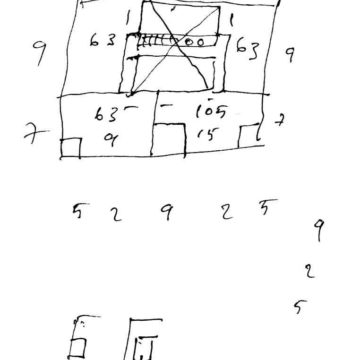 1 1
9 63 63 9
7 63 105 7
9 15
5 2 9 2 5
9
2
5